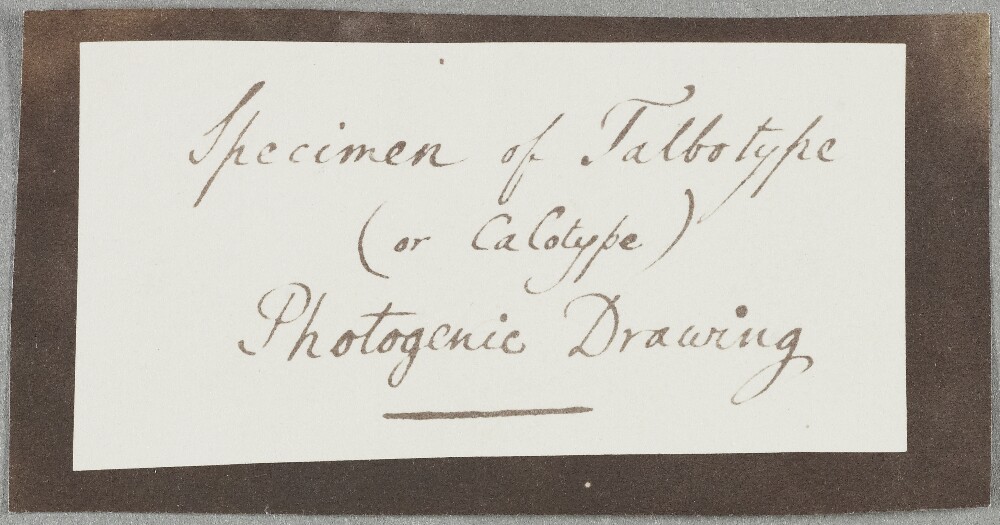 Specimen of Talbotype
(or Calotype)
Photogenic Drawing